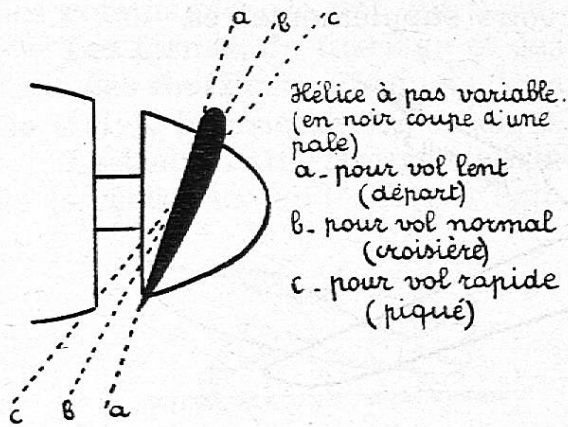 a
b
c
Hélice à pas variable.
(en noir coupe d'une
pale)
a_ pour vol lent
(départ)
b_ pour vol normal
(croisière)
c_ pour vol rapide
(piqué)
c
b
a